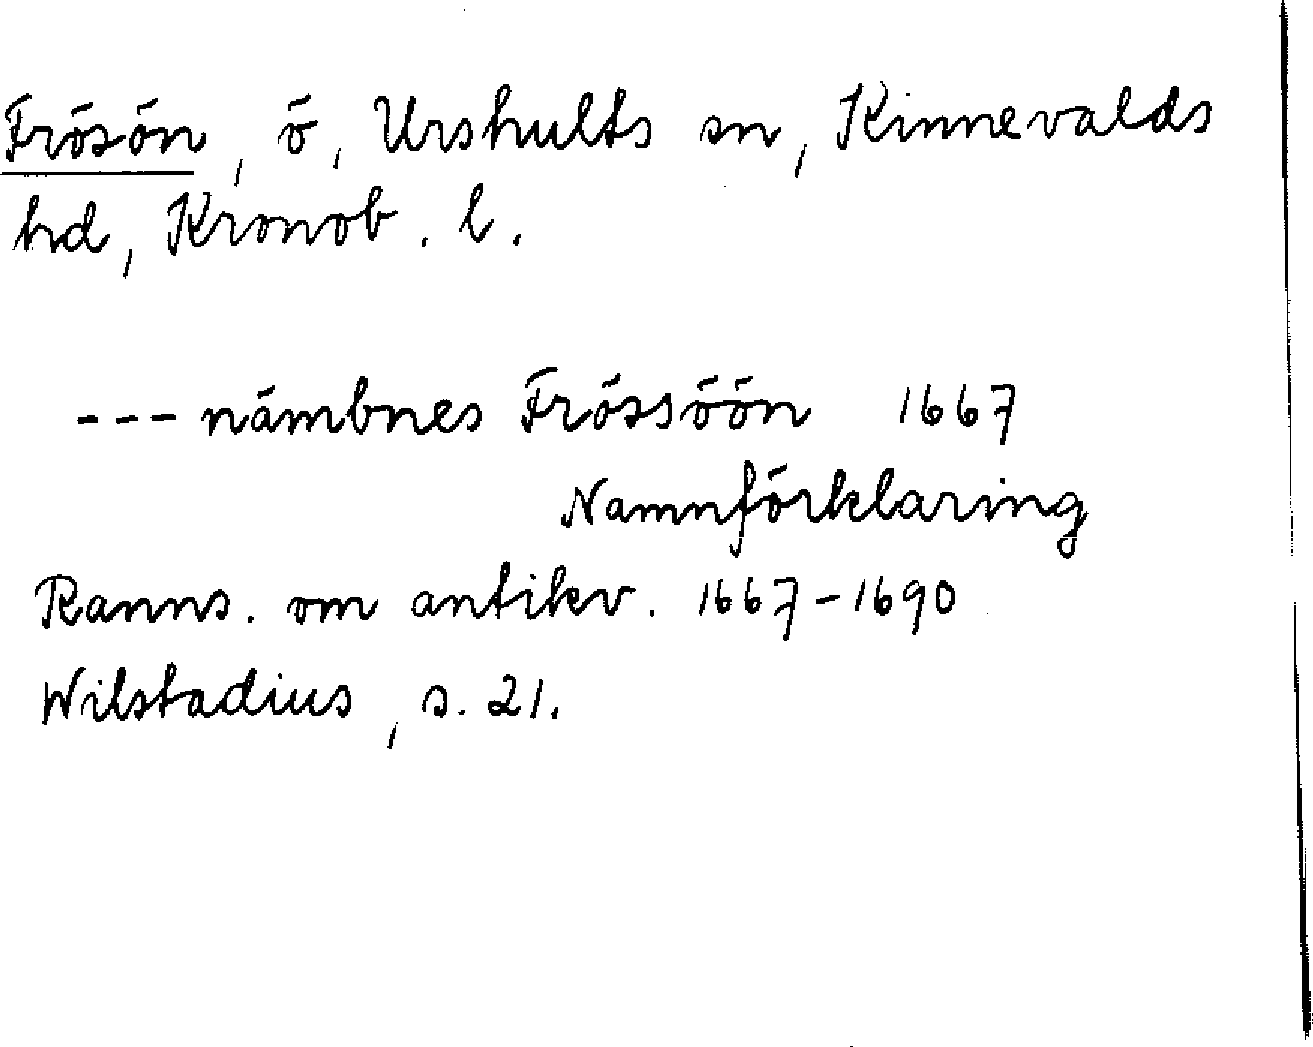 Frösön, ö, Urshults sn, Kinnevalds
hd, Kronob. l.
--- nämbnes Frössöön 1667
Namnförklaring
Ranns. om antikv. 1667-1690
Wilstadius, s. 21.